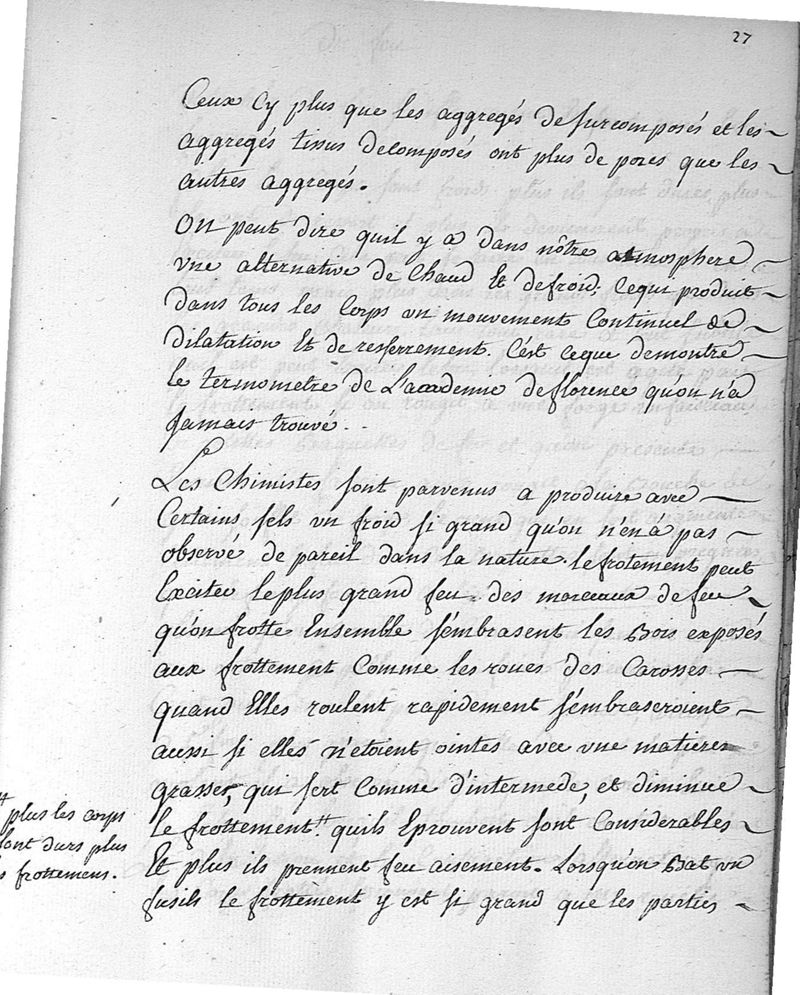 27
Ceux Cy plus que les aggregés desurcomposés et les
aggregés tissus decomposés ont plus de pores que les
autres aggregés.
On peut dire quil y a dans nôtre atmosphere
vne alternative de Chaud Et defroid, cequi produit
dans tous les Corps un mouvement Continuel de
dilatation Et de resserrement. C'est ceque demontre
le termometre de L'accademie deflorence qu'on n'a
jamais trouvé.
Les Chimistes sont parvenus a produire avec
Certains sels vn froid si grand qu'on n'en à pas
observé de pareil dans la nature. le frotement peut
Exciter leplus grand feu. des morceaux defeu
qu'on frotte Ensemble s'émbrasent les Bois exposés
aux frottement Comme les roues des Carosses
quand Elles roulent rapidement s'émbraseroient
aussi si elles n'etoient ointes avec vne matiere
grasse, qui sert Comme d'intermede, et diminue
le frottement # quils Eprouvent sont Considerables
Et plus ils prennent feu aisement. Lorsqu'on Bat un
fusils le frottement y est si grand que les parties
# plus les corps
sont durs plus
frottemens.